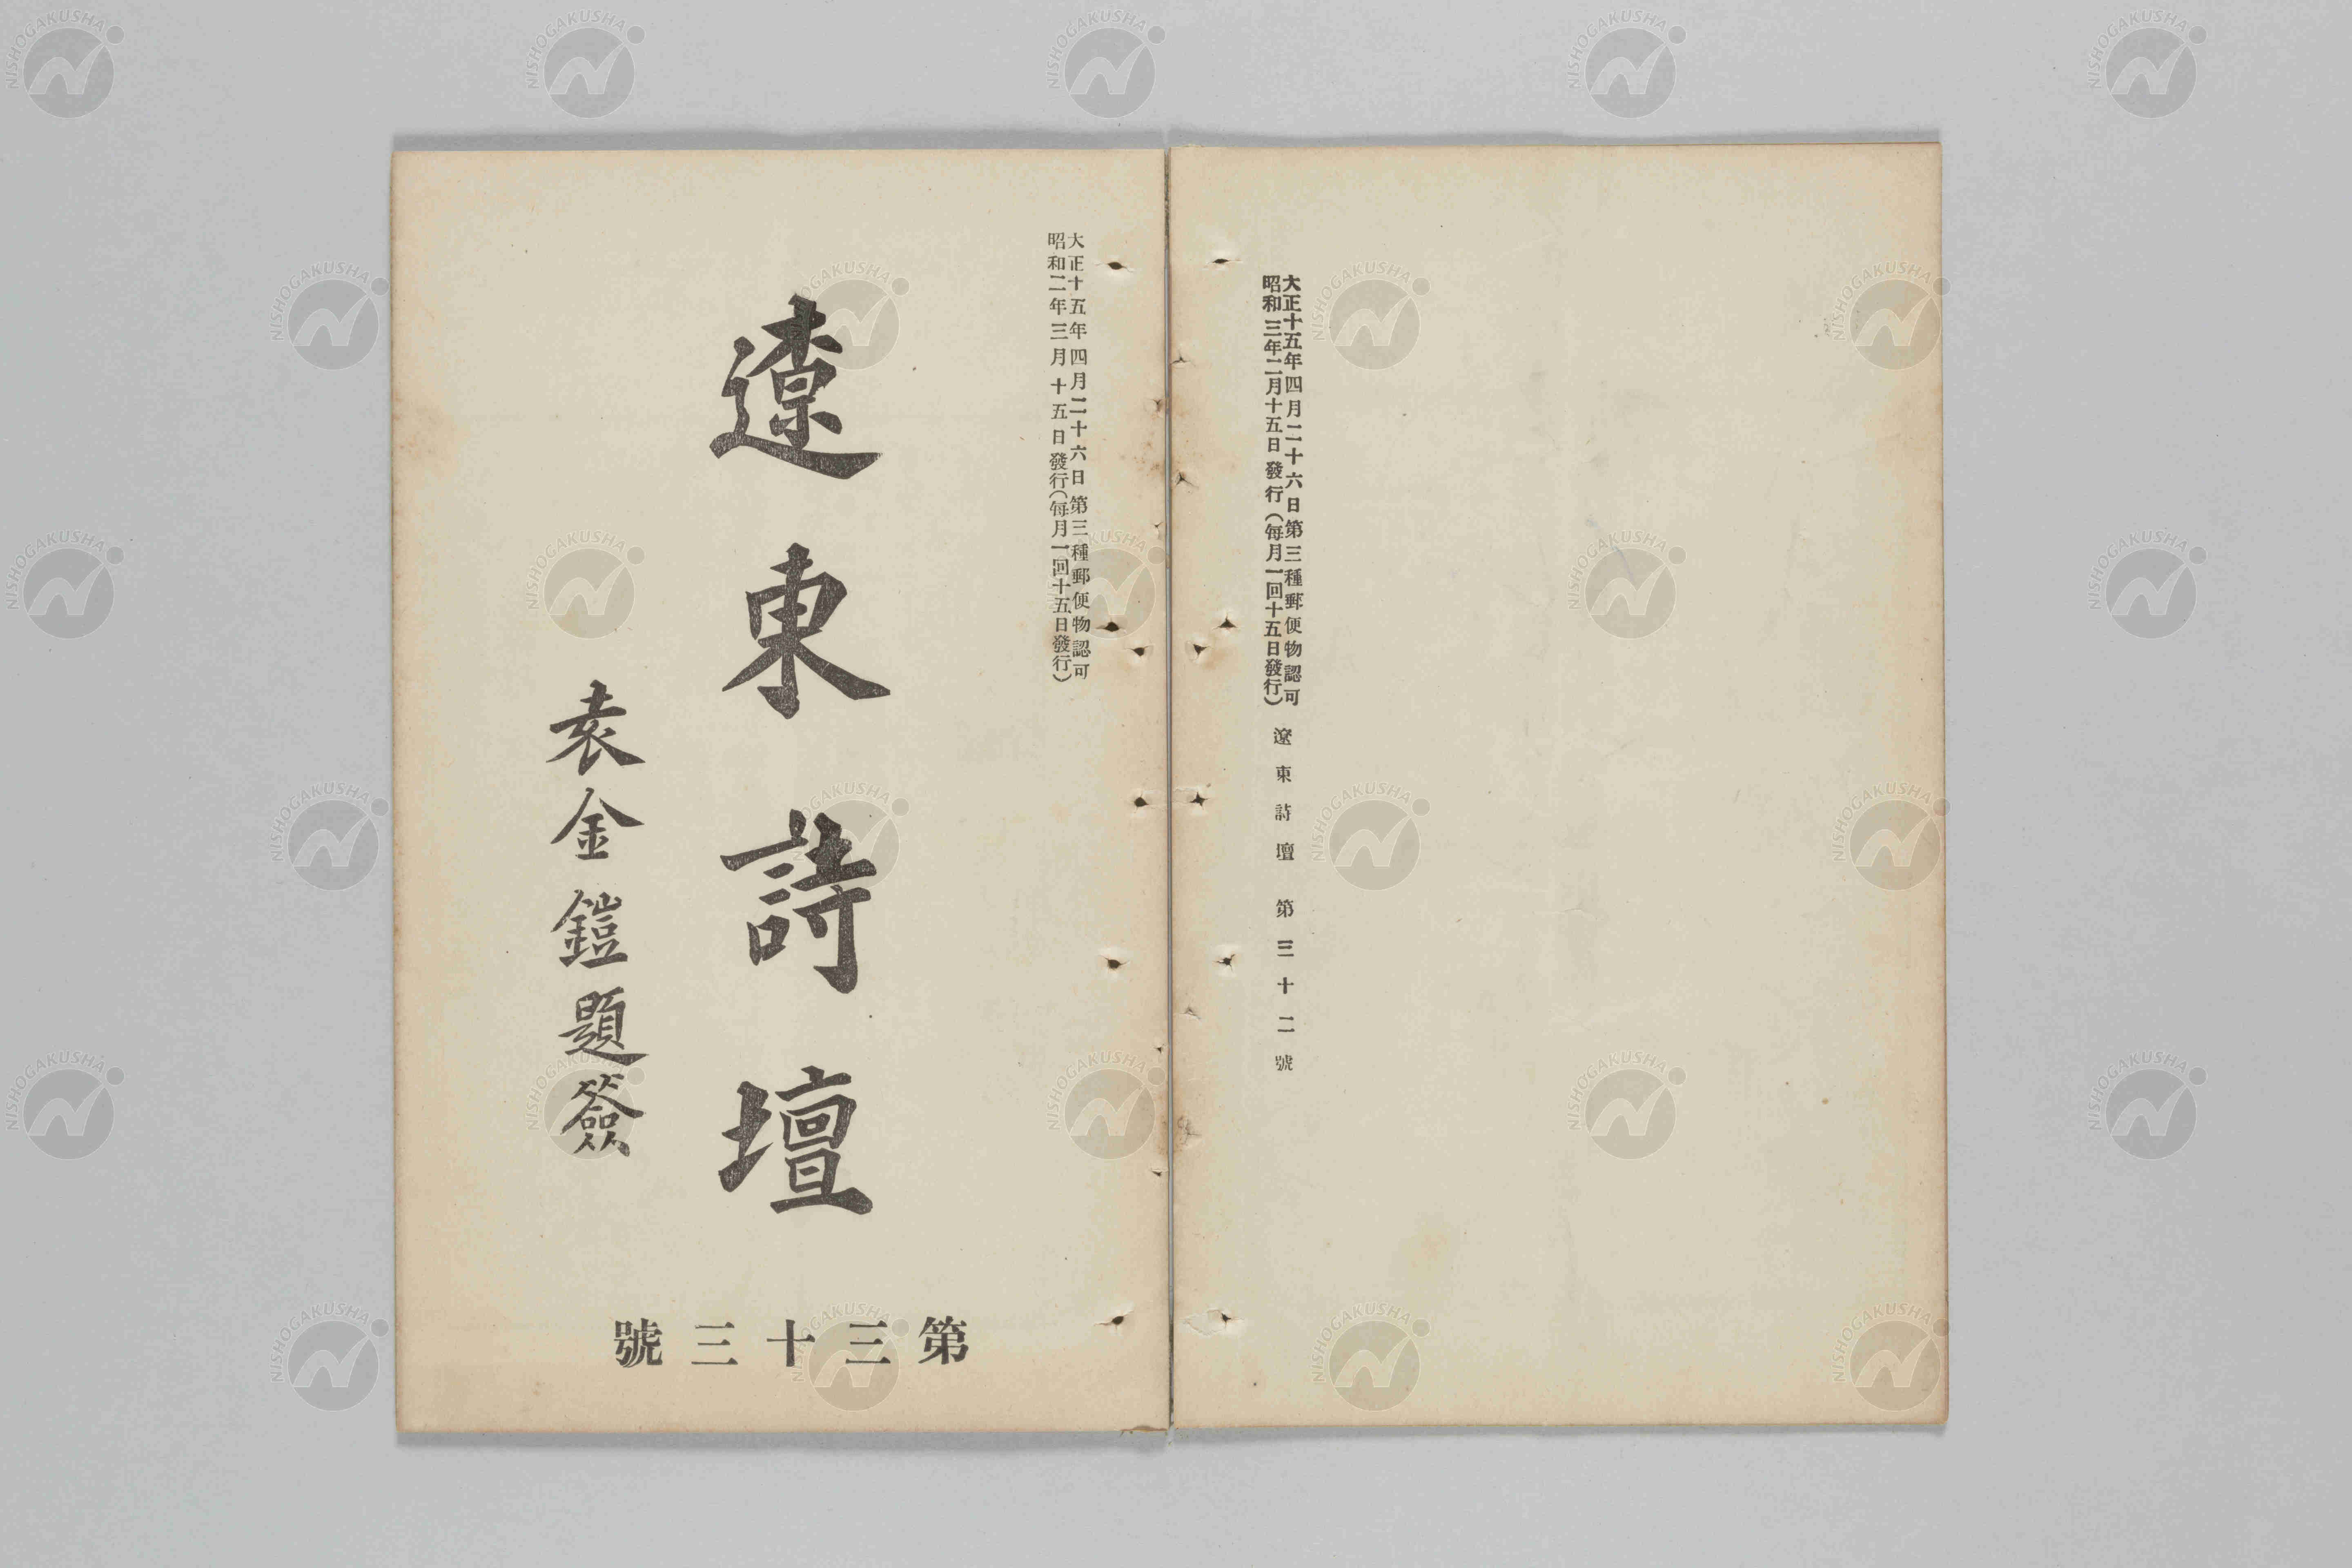 大正十五年四月二十六日第三種郵便物認可
昭和三年二月十五日發行(每月一回十五日發行)
遼東詩壇 第三十二號
大正十五年四月二十六日第三種郵便物認可
昭和二年三月十五日發行(每月一回十五日發行)
遼東詩壇
袁金鎧題簽
第三十三號
NISHOGAKUSHA